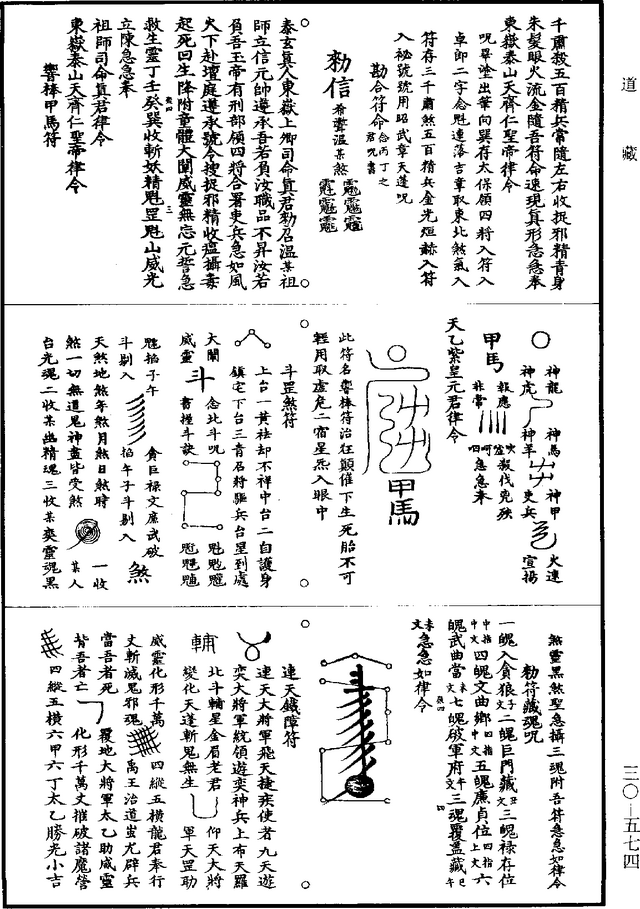 道藏
千肅殺五百精兵常隨左右收捉邪精青身
朱髮眼火流金隨吾符命速現真形急急奉
東嶽泰山天齊仁聖帝律令
呪畢塗出筆向巽存太保領四將入符入
卓郎二字念魁連落吉章取東北煞氣入
符存三千肅煞五百精兵金光烜赫入符
入祕號號用昭武章天蓬呪
勘合符命念丙丁之君呪書
勑信希聾溫某煞
泰玄真人東嶽上卿司命真君勑召溫某祖
師立信元帥遵承吾若負汝職品不昇汝若
負吾玉帝有刑部領四將合署吏兵急如風
火下赴壇庭遵承號令搜捉邪精收瘟攝毒
起死回生降附童體大闡威靈無忘元誓急
救生靈丁壬癸巽收斬妖精魁罡魁山威光
立陳急急奉
祖師司命真君律令
東嶽泰山天齊仁聖帝律令
響棒甲馬符
神龍 神馬 神甲 火速
神虎 神羊 吏兵 宣揚
甲馬 報應 非常
殺伐克殃
急急奉
天乙紫皇元君律令
甲馬
此符名響棒符治狂顛催下生死胎不可
輕用取虛危二宿星炁入眼中
斗罡煞符
上台一黃祛却不祥中台二白護身
鎮宅下台三青召將驅兵台星到處
大闡 念北斗呪
威靈 斗 書撞斗訣
魁掐子午 貪巨祿文廉武破
斗剔入 掐午子斗剔入 煞
天煞地煞年煞月煞日煞時
煞一切無道鬼神盡皆受煞 某人 一收
台光魂二收某幽精魂三收某奕靈魂黑
煞靈黑煞聖急攝三魂附吾符急急如律令
勑符藏魂呪
一魄入貪狼子文二魄巨門藏丑文三魄祿存位
中指中文四魄文曲鄉四指中文五魄廉貞位四指上文六
魄武曲當未文七魄破軍府午文三魂覆蓋藏巳午
未文急急如律令
連天鐵障符
連天大將軍飛天捷疾使者九天遊
奕大將軍統領遊奕神兵上布天羅
輔 北斗輔星金眉老君 仰天大將
變化天蓬斬鬼無生 軍天罡助
威靈化形千萬 四縱五橫龍君奉行
丈斬滅鬼邪魂 禹王治道蚩尤辟兵
當吾者死 覆地大將軍太乙助威靈
背吾者亡 化形千萬丈摧破諸魔營
四縱五橫六甲六丁太乙勝光小吉
三〇—五七四